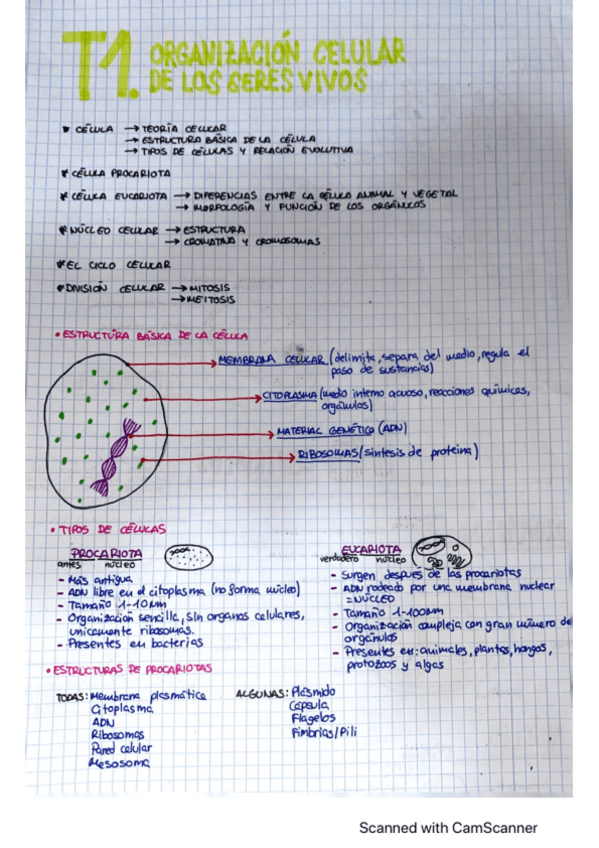 T1. ORGANIZACIÓN CELULAR
DE LOS SERES VIVOS
* CÉLULA → TEORÍA CELULAR
→ ESTRUCTURA BÁSICA DE LA CÉLULA
→ TIPOS DE CÉLULAS Y RELACIÓN EVOLUTIVA
* CÉLULA PROCARIOTA
* CÉLULA EUCARIOTA → DIFERENCIAS ENTRE LA CÉLULA ANIMAL Y VEGETAL
→ MORFOLOGÍA Y FUNCIÓN DE LOS ORGÁNULOS
* NÚCLEO CELULAR → ESTRUCTURA
→ CROMATINA Y CROMOSOMAS
* EL CICLO CELULAR
* DIVISIÓN CELULAR → MITOSIS
→ MEITOSIS
• ESTRUCTURA BÁSICA DE LA CÉLULA
MEMBRANA CELULAR (delimita, separa del medio, regula el
paso de sustancias)
CITOPLASMA (medio interno acuoso, reacciones químicas,
orgánulos)
MATERIAL GENÉTICO (ADN)
RIBOSOMAS (síntesis de proteina)
• TIPOS DE CÉLULAS
PROCARIOTA
antes núcleo
- Más antigua
- ADN libre en el citoplasma (no forma núcleo)
- Tamaño 1-10µm
- Organización sencilla, sin organos celulares,
unicamente ribosomas.
- Presentes en bacterias
EUCARIOTA
verdadero núcleo
- Surgen despues de las procariotas
- ADN rodeado por una membrana nuclear
= NÚCLEO
- Tamaño 1-100µm
- Organización compleja con gran número de
orgánulos
- Presentes en: animales, plantas, hongos,
protozoos y algas
• ESTRUCTURAS DE PROCARIOTAS
TODAS: Membrana plasmática
Citoplasma
ADN
Ribosomas
Pared celular
Mesosoma
ALGUNAS: Plásmido
Cápsula
Flagelos
Fimbrias/Pili
Scanned with CamScanner